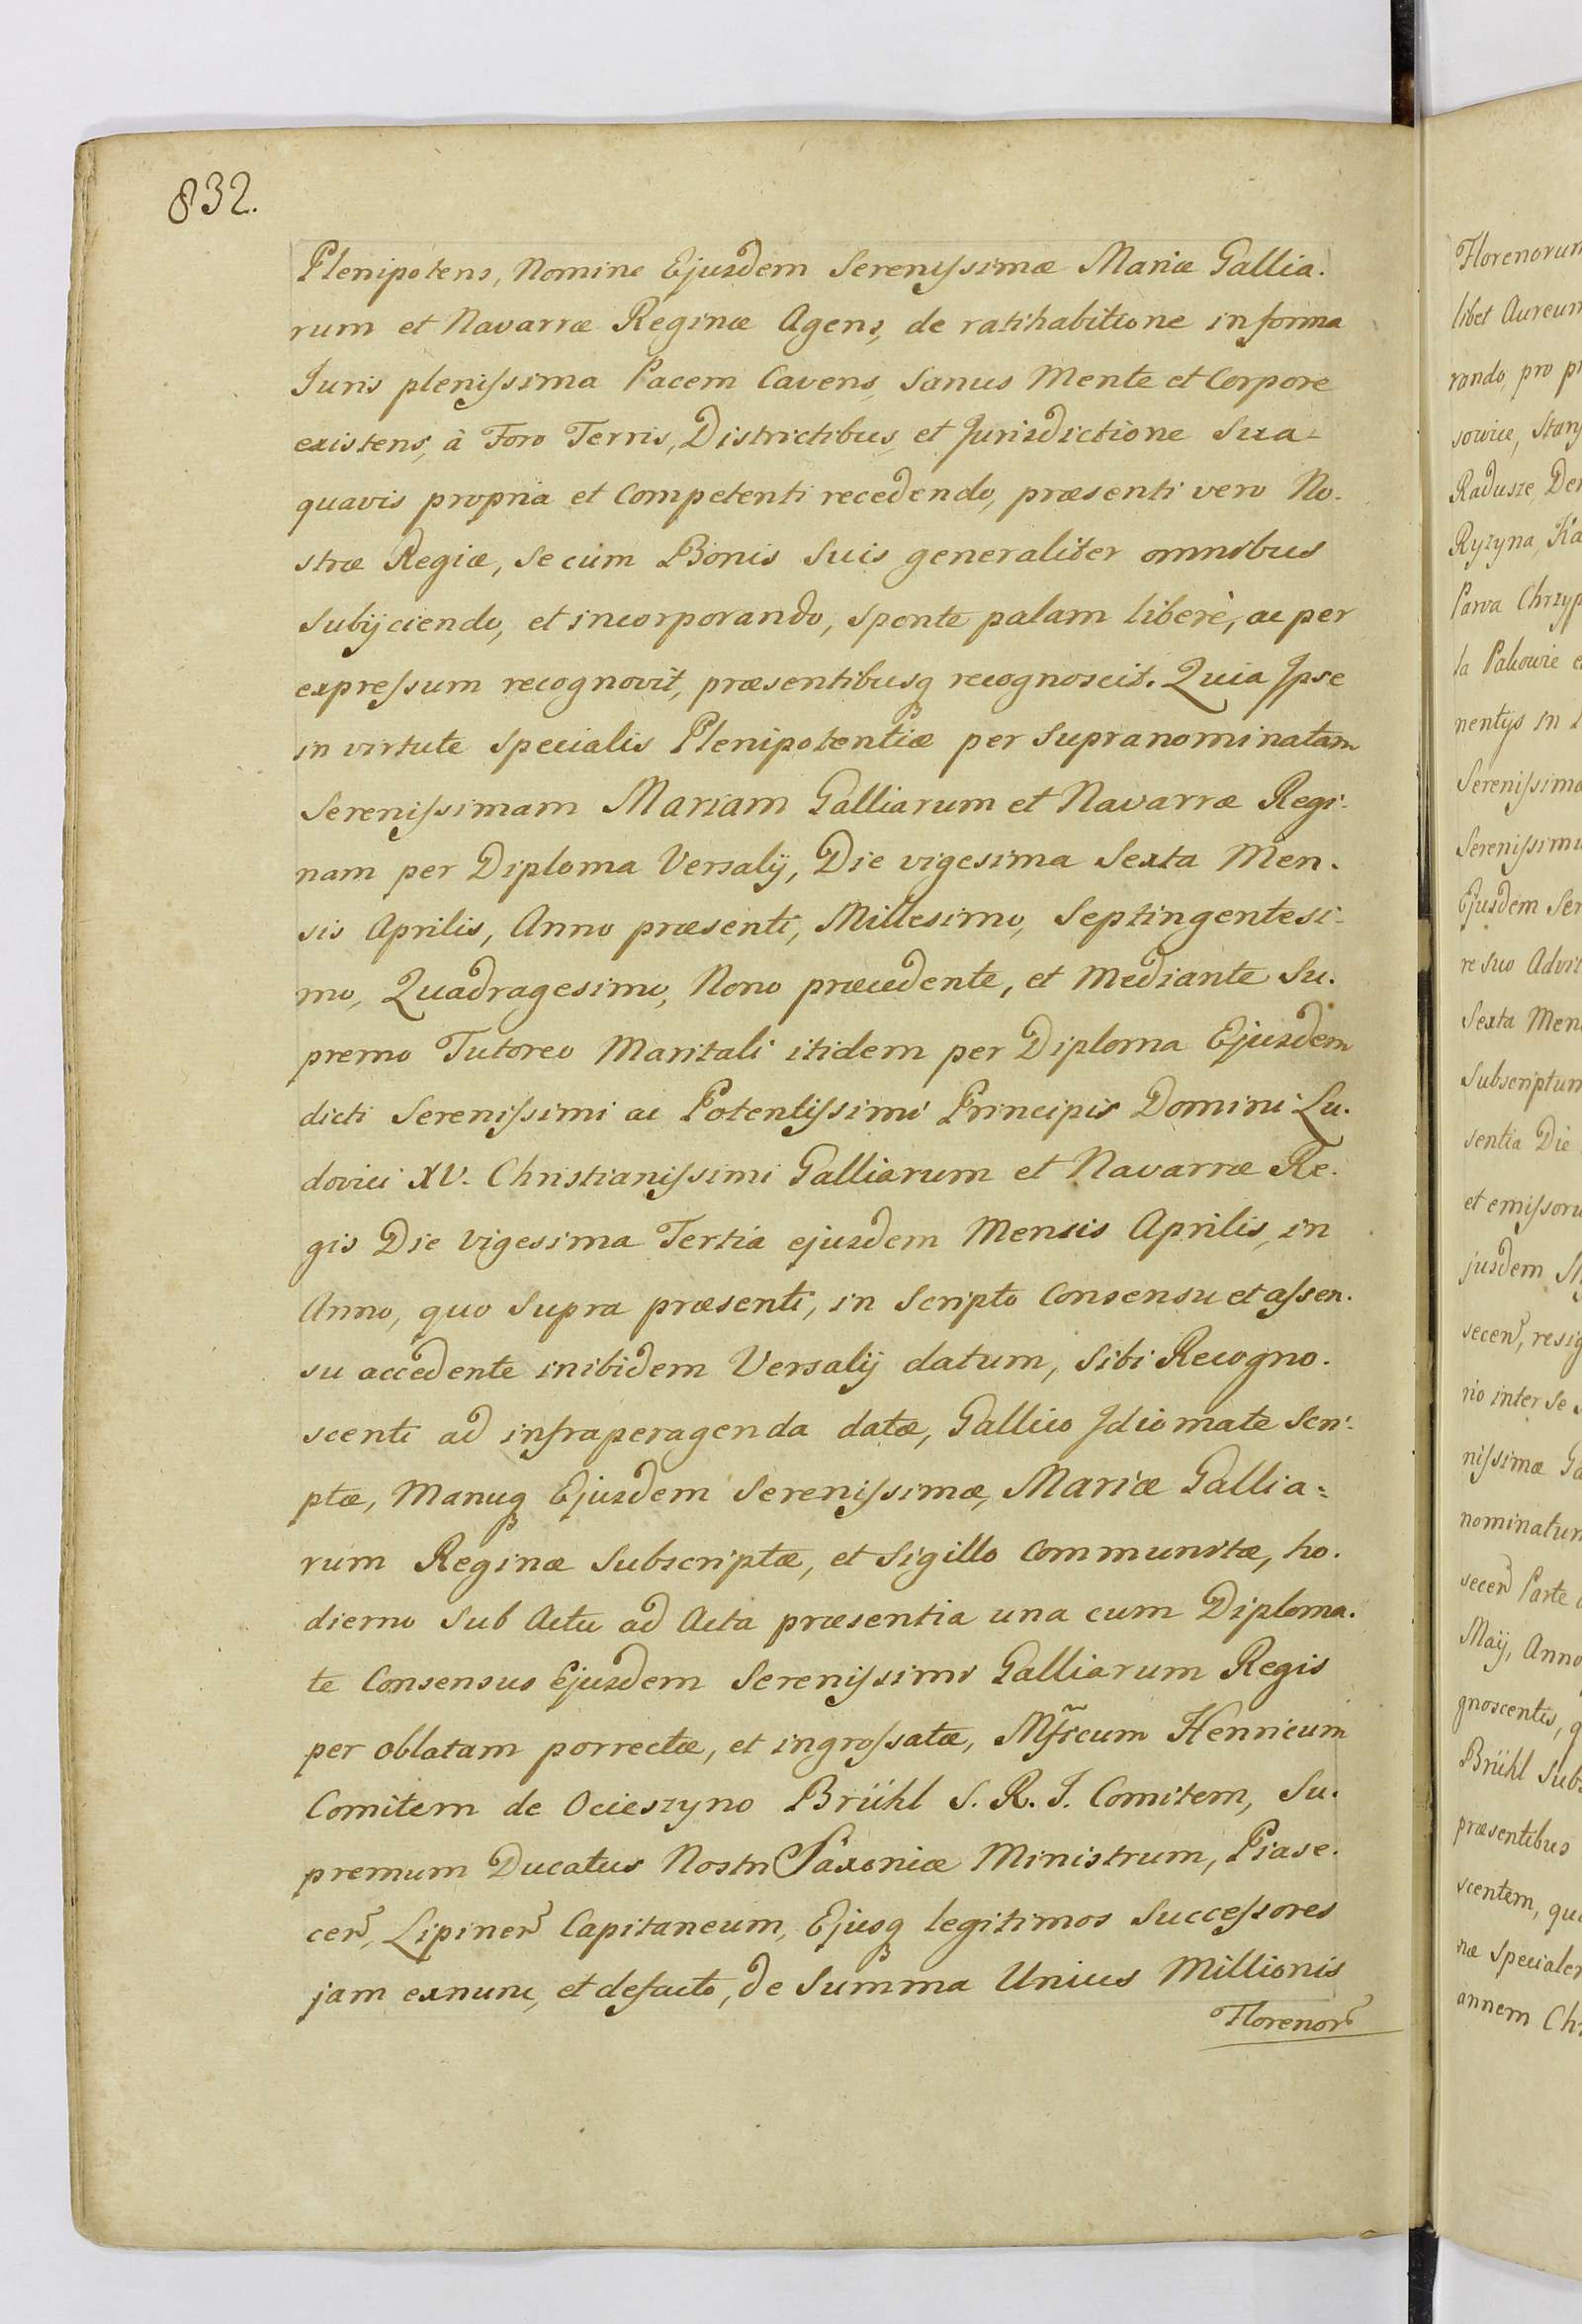 832.
Plenipotens, Nomine Ejusdem Serenissimæ Mariæ Gallia.
rum et Navarræ Reginæ Agens, de ratihabitione in forma
Juris plenissima Pacem Cavens, Sanus Mente et Corpore
existens, à Foro Terris, Districtibus, et Jurisdictione Sua
quavis propria et Competenti recedendo, præsenti vero No.
stræ Regiæ, Se cum Bonis Suis generaliter omnibus
Subijciendo, et incorporando, Sponte palam liberè, ac per
expressum recognovit, præsentibusq recognoscit. Quia Ipse
in virtute Specialis Plenipotentiæ per Supranominatam
Serenissimam Mariam Galliarum et Navarræ Regi.
nam per Diploma Versalij, Die vigesima Sexta Men.
sis Aprilis, Anno præsenti, Millesimo, Septingentesi
mo, Quadragesimo, Nono præcedente, et Mediante Su.
premo Tutoreo Maritali itidem per Diploma Ejusdem
dicti Serenissimi ac Potentissimi Principis Domini Lu.
dovici XV. Christianissimi Galliarum et Navarræ Re.
gis Die Vigesima Tertia ejusdem Mensis Aprilis, in
Anno, quo Supra præsenti, in Scripto Consensu et assen.
su accedente inibidem Versalij datum, Sibi Recogno.
scenti ad infraperagenda datæ, Gallico Idiomate Scri:
ptæ, Manuq Ejusdem Serenissimæ, Mariæ Gallia:
rum Reginæ Subscriptæ, et Sigillo Communitæ, ho.
dierno Sub Actu ad Acta præsentia una cum Diploma.
te Consensus Ejusdem Serenissimi Galliarum Regis
per oblatam porrectæ, et ingrossatæ, Mficum Henricum
Comitem de Ocieszyno Brühl S. R. I. Comitem, Su.
premum Ducatus Nostri Saxoniæ Ministrum, Piase.
cen, Lipinen Capitaneum, Ejusq legitimos Successores
jam exnunc, et defacto, de Summa Unius Millionis
Florenor
Florenorum
libet Aureum
rando, pro
sowice,
Radusze,
Ryzyna,
Parva
la Pakowie
nentijs in
Serenissimo
Serenissimu
Ejusdem Ser
re Suo
Sexta Men
Subscriptum
sentia Die
et emissoru
jusdem
secen,
rio inter Se
nissimæ Ga
nominatum
secen Parte
Maij, Anno
gnoscentis,
Brühl Subs
præsentibus
scentem,
næ Specialem
annem